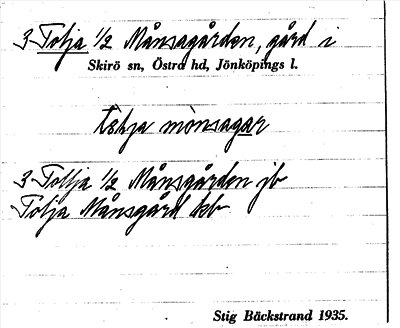 3 Tolja ½ Månsagården, gård i
Skirö sn, Östra hd, Jönköpings l.
mònsagar
3 Tollja ½ Månsgården jb
Tolja Månsgård kb
Stig Bäckstrand 1935.